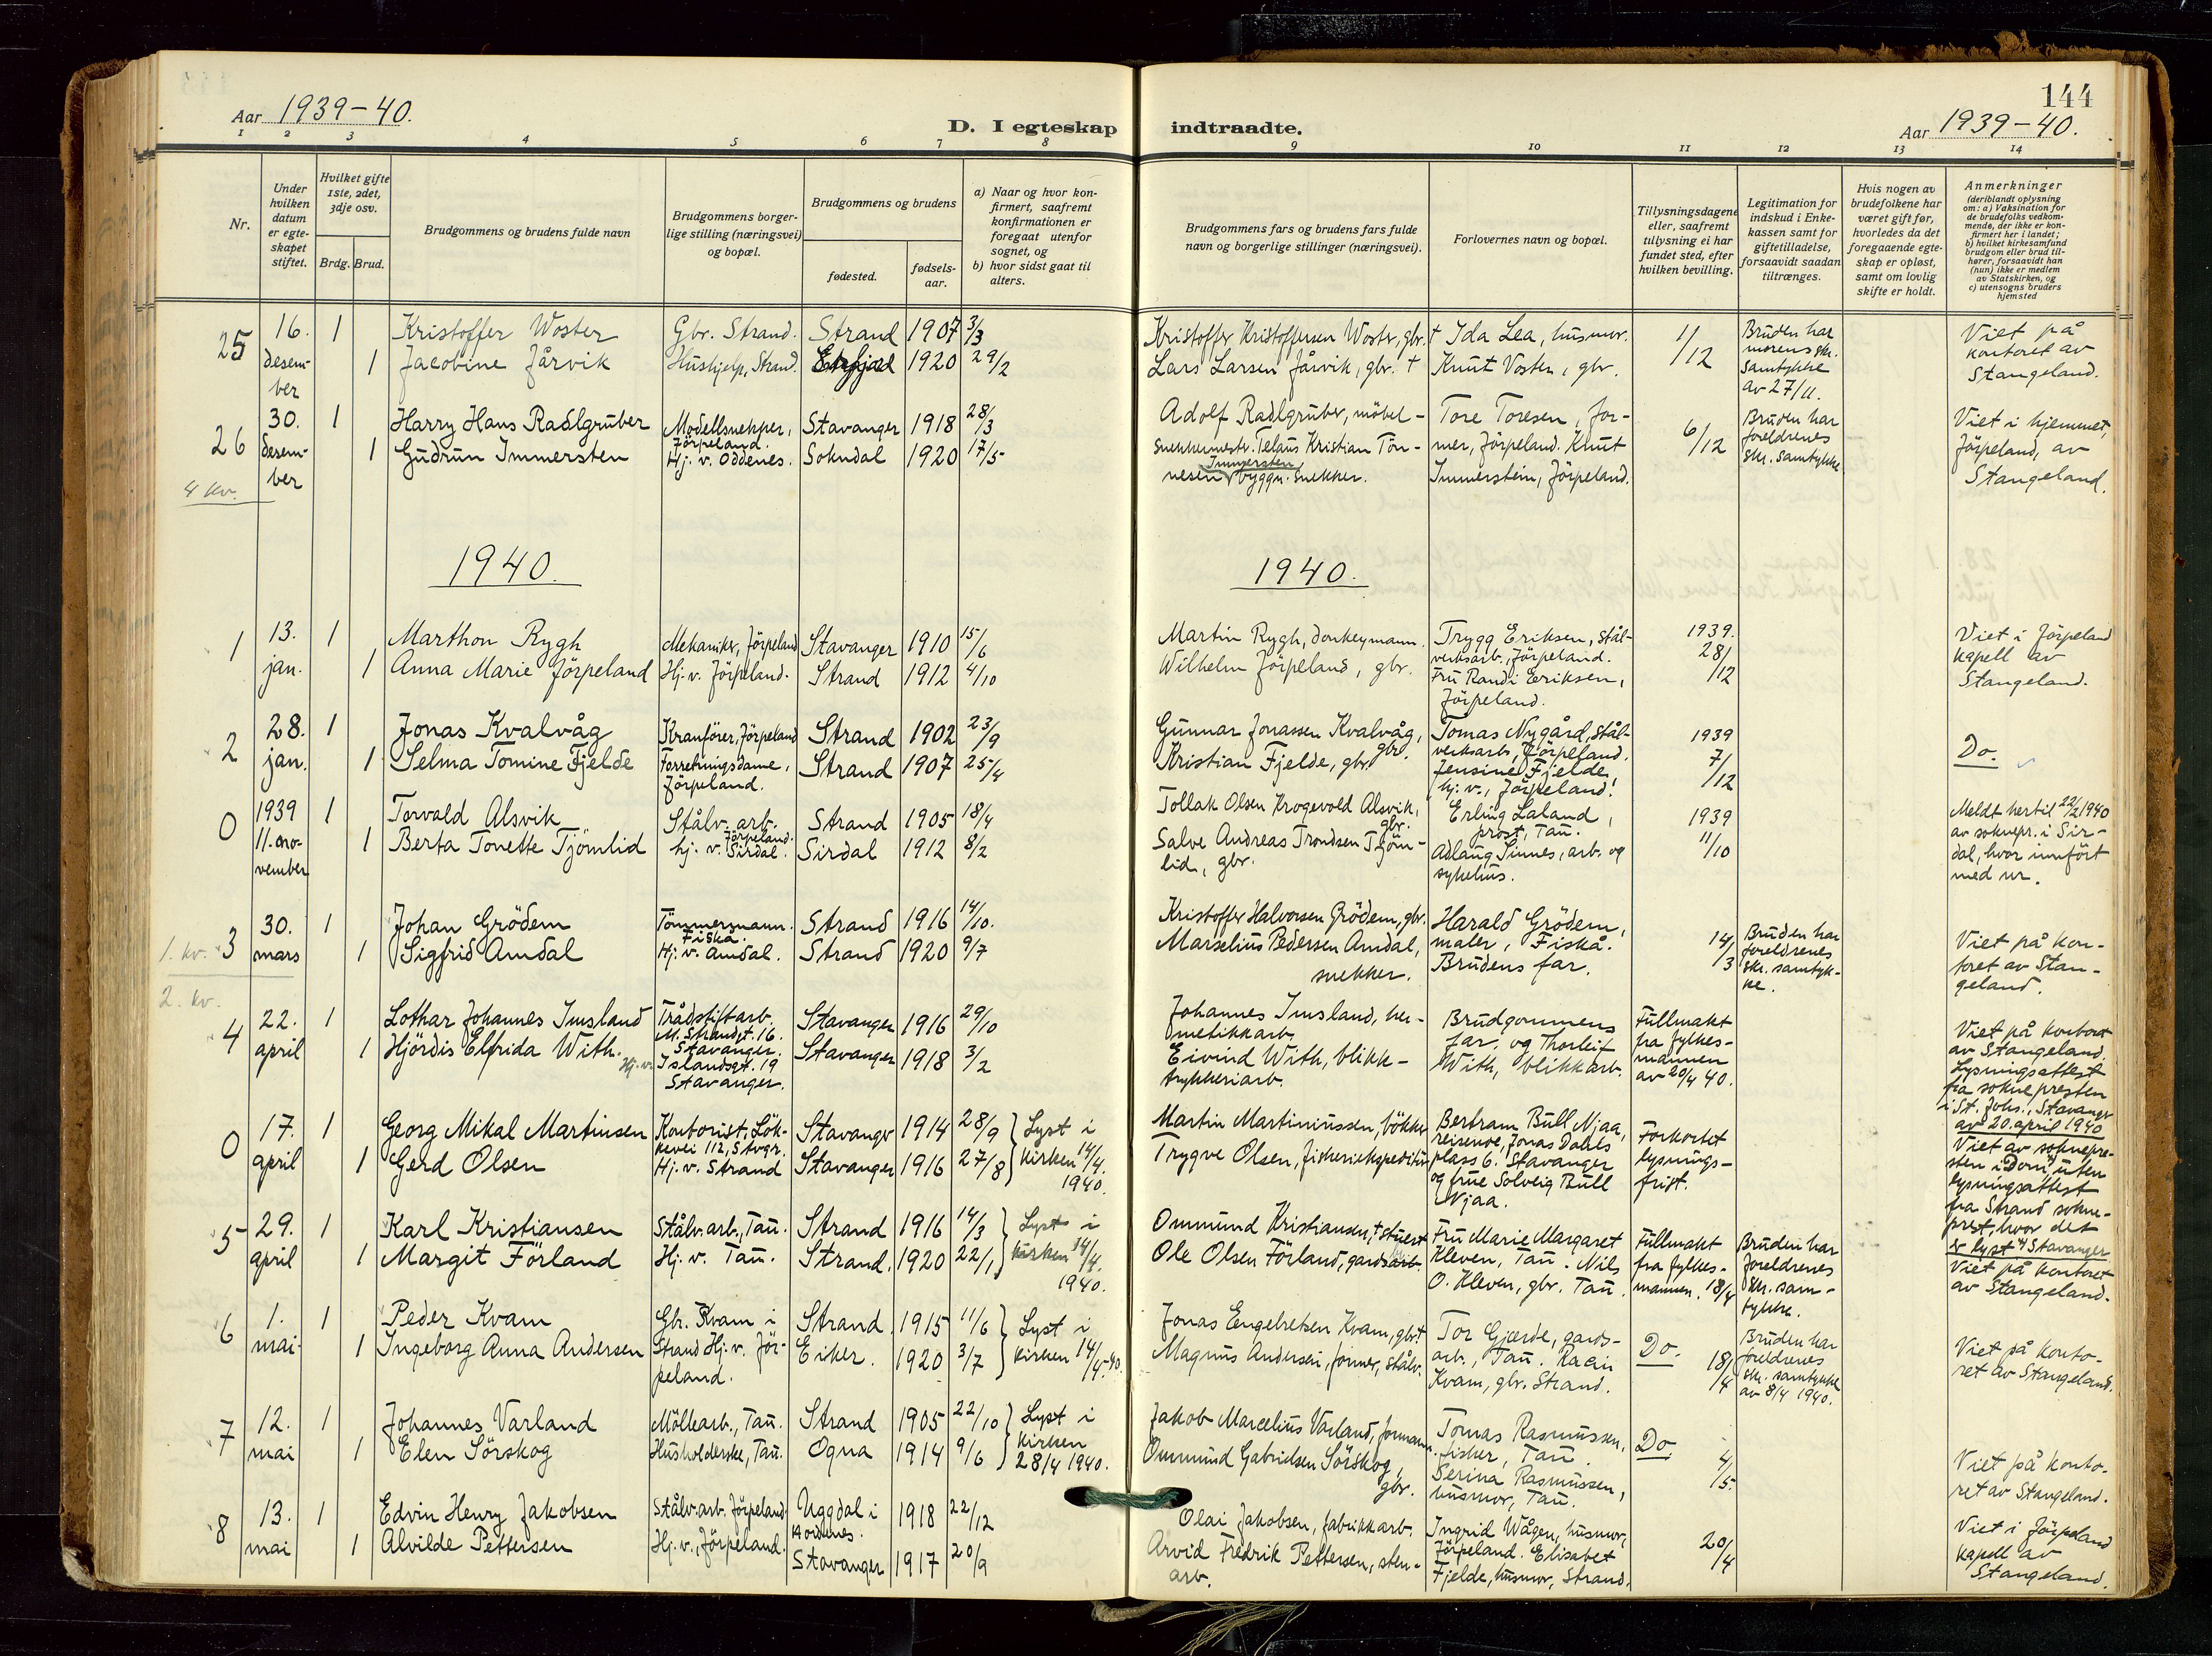 144
Aar 1939-40.
D. I egteskap indtraadte.
Aar 1939-40.
1 2 3 4 5 6 7 8 9 10 11 12 13 14
Nr.
Under hvilken datum er egteskapet stiftet.
Hvilket gifte 1ste, 2det, 3dje osv.
Brdg. Brud.
Brudgommens og brudens fulde navn
Brudgommens borgerlige stilling (næringsvei) og bopæl.
Brudgommens og brudens
fødested.
fødselsaar.
a) Naar og hvor konfirmert, saafremt konfirmationen er foregaat utenfor sognet, og
b) hvor sidst gaat til alters.
Brudgommens fars og brudens fars fulde navn og borgerlige stillinger (næringsvei).
Forlovernes navn og bopæl.
Tillysningsdagene eller, saafremt tillysning ei har fundet sted, efter hvilken bevilling.
Legitimation for indskud i Enkekassen samt for giftetilladelse, forsaavidt saadan tiltrænges.
Hvis nogen av brudefolkene har været gift før, hvorledes da det foregaaende egteskap er opløst, samt om lovlig skifte er holdt.
Anmerkninger (deriblandt oplysning om: a) Vaksination for de brudefolks vedkommende, der ikke er konfirmert her i landet; b) hvilket kirkesamfund brudgom eller brud tilhører, forsaavidt han (hun) ikke er medlem av Statskirken, og c) utensogns bruders hjemsted
25 16. desember 1 Kristoffer Woster Gbr. Strand. Strand 1907 3/3 Kristoffer Kristoffersen Woster, gbr. † Ida Lea, husmor. 11/12 Bruden har morens skr. samtykke av 27/11. Viet på kontoret av Stangeland.
1 Jacobine Jårvik Hushjelp, Strand. 1920 29/2 Lars Larsen Jårvik, gbr. † Knut Vosten, gbr.
26 30. desember 1 Harry Hans Radlgruber Modellsnekker, Jörpeland. Stavanger 1918 28/3 Adolf Radlgruber, möbelsnekkermester. Tore Toresen, former, Jörpeland. 6/12 Bruden har foreldrenes skr. samtykke Viet i hjemmet, Jörpeland, av Stangeland.
1 Gudrun Immersten Hj. v. Oddenes. Sokndal 1920 17/5 Kristian Tönnesen Immersten byggn. snekker. Knut Immerstein, Jörpeland.
4 kv.
1940. 1940.
1 13. jan. 1 Marthon Rygh Mekaniker, Jörpeland Stavanger 1910 15/6 Martin Rygh, donkeymann. Trygg Eriksen, stålverksarb., Jörpeland. 1939. 28/12 Viet i Jörpeland kapell av Stangeland.
1 Anna Marie Jörpeland Hj. v. Jörpeland. Strand 1912 4/10 Wilhelm Jörpeland, gbr. Fru Randi Eriksen, Jörpeland.
2 28. jan. 1 Jonas Kvalvåg Kranförer, Jörpeland Strand 1902 23/9 Gunnar Jonassen Kvalvåg, gbr. Tomas Nygård, stålverksarb., Jörpeland. 1939 7/12 Do.
1 Selma Tomine Fjelde Forretningsdame, Jörpeland. Strand 1907 25/4 Kristian Fjelde, gbr. Jensine Fjelde, hj. v., Jörpeland.
0 1939 11. november 1 Torvald Alsvik Stålv. arb. Jörpeland. Strand 1905 18/4 Tollak Olsen Krogevold Alsvik, gbr. Erling Laland, prost, Tau. 1939 11/10 Meldt hertil 22/2 1940 av soknepr. i Sirdal, hvor innfört med nr.
1 Berta Tonette Tjömlid hj. v. Sirdal. Sirdal 1912 8/2 Salve Andreas Trondsen Tjömlid, gbr. Adlaug Sinnes, arb. og sykehus.
3 30. mars 1 Johan Grödem Tömmermann. Fiskå. Strand 1916 14/10. Kristoffer Halvorsen Grödem, gbr. Harald Grödem, maler, Fiskå. 14/3 Bruden har foreldrenes skr. samtykke. Viet på kontoret av Stangeland.
1. kv.
1 Sigfrid Amdal Hj. v. Amdal. Strand 1920 9/7 Marselius Pedersen Amdal, snekker. Brudens far.
2. kv.
4 22. april 1 Lothar Johannes Imsland Trådstiftarb. M. Strandgt. 16. Stavanger. Stavanger 1916 29/10 Johannes Imsland, hermetikkarb. Brudgommens far, og Thorleif With, blikkarb. Fullmakt fra fylkesmannen av 20/4 40. Viet på kontoret av Stangeland. Lysningsattest fra soknepresten i St. Johs., Stavanger av 20. april 1940
1 Hjördis Elfrida With. Hj. v. Islandsgt. 19 Stavanger. Stavanger 1918 3/2 Eivind With, blikktrykkeriarb.
0 17. april 1 Georg Mikal Martinsen Kontorist, Lökkevei 112, Stvgr. Stavanger 1914 28/9 Lyst i kirken 14/4. 1940. Martin Martiniussen, bökker Bertram Bull Njaa, reisende, Jonas Dahls plass 6. Stavanger og frue Solveig Bull Njaa. Forkortet lysningsfrist. Viet av soknepresten i Domk. uten lysningsattest fra Strand sokneprest, hvor det er lyst. Stavanger
1 Gerd Olsen Hj. v. Strand Stavanger 1916 27/8 Trygve Olsen, fiskeriekspeditör
5 29. april 1 Karl Kristiansen Stålv. arb., Tau. Strand 1916 14/3 Lyst i kirken 14/4. 1940. Ommund Kristiansen, † Fru Marie Margaret Kleven, Tau. Nils O. Kleven, gbr. Tau. Fullmakt fra fylkesmannen. 18/4 Bruden har foreldrenes skr. samtykke. Viet på kontoret av Stangeland.
1 Margit Förland Hj. v. Tau. Strand. 1920 22/1 Ole Olsen Förland, gardsarb.
6 1. mai 1 Peder Kvam Gbr. Kvam i Strand Strand. 1915 11/6 Lyst i kirken 14/4.-40. Jonas Engelretsen Kvam, gbr. † Tor Gjerde, gardsarb., Tau. Do. 18/4 Bruden har foreldrenes skr. samtykke av 8/4 1940. Viet på kontoret av Stangeland.
1 Ingeborg Anna Andersen Hj. v. Jörpeland. Eiker. 1920 3/7 Magnus Andersen, former, stålv. Kvam, gbr. Strand.
7 12. mai 1 Johannes Varland Möllearb., Tau. Strand 1905 22/10 Lyst i kirken 28/4 1940. Jakob Marcelius Varland, formann. Tomas Rasmussen, fisker, Tau. Do. 4/5. Viet på kontoret av Stangeland.
1 Elen Sörskog Husholderske, Tau. Ogna 1914 9/6 Ommund Gabrielsen Sörskog, gbr. Serina Rasmussen, husmor, Tau.
8 13. mai 1 Edvin Henry Jakobsen Stålv. arb. Jörpeland. Uggdal i 1918 22/12 Olai Jakobsen, fabrikkarb. Ingrid Wågen, husmor, Jörpeland. 20/4 Viet i Jörpeland kapell av Stangeland.
1 Alvilde Pettersen Hj. v., Jörpeland. Stavanger 1917 20/9 Arvid Fredrik Pettersen, stenarb. Elisabet Fjelde, husmor, Strand.